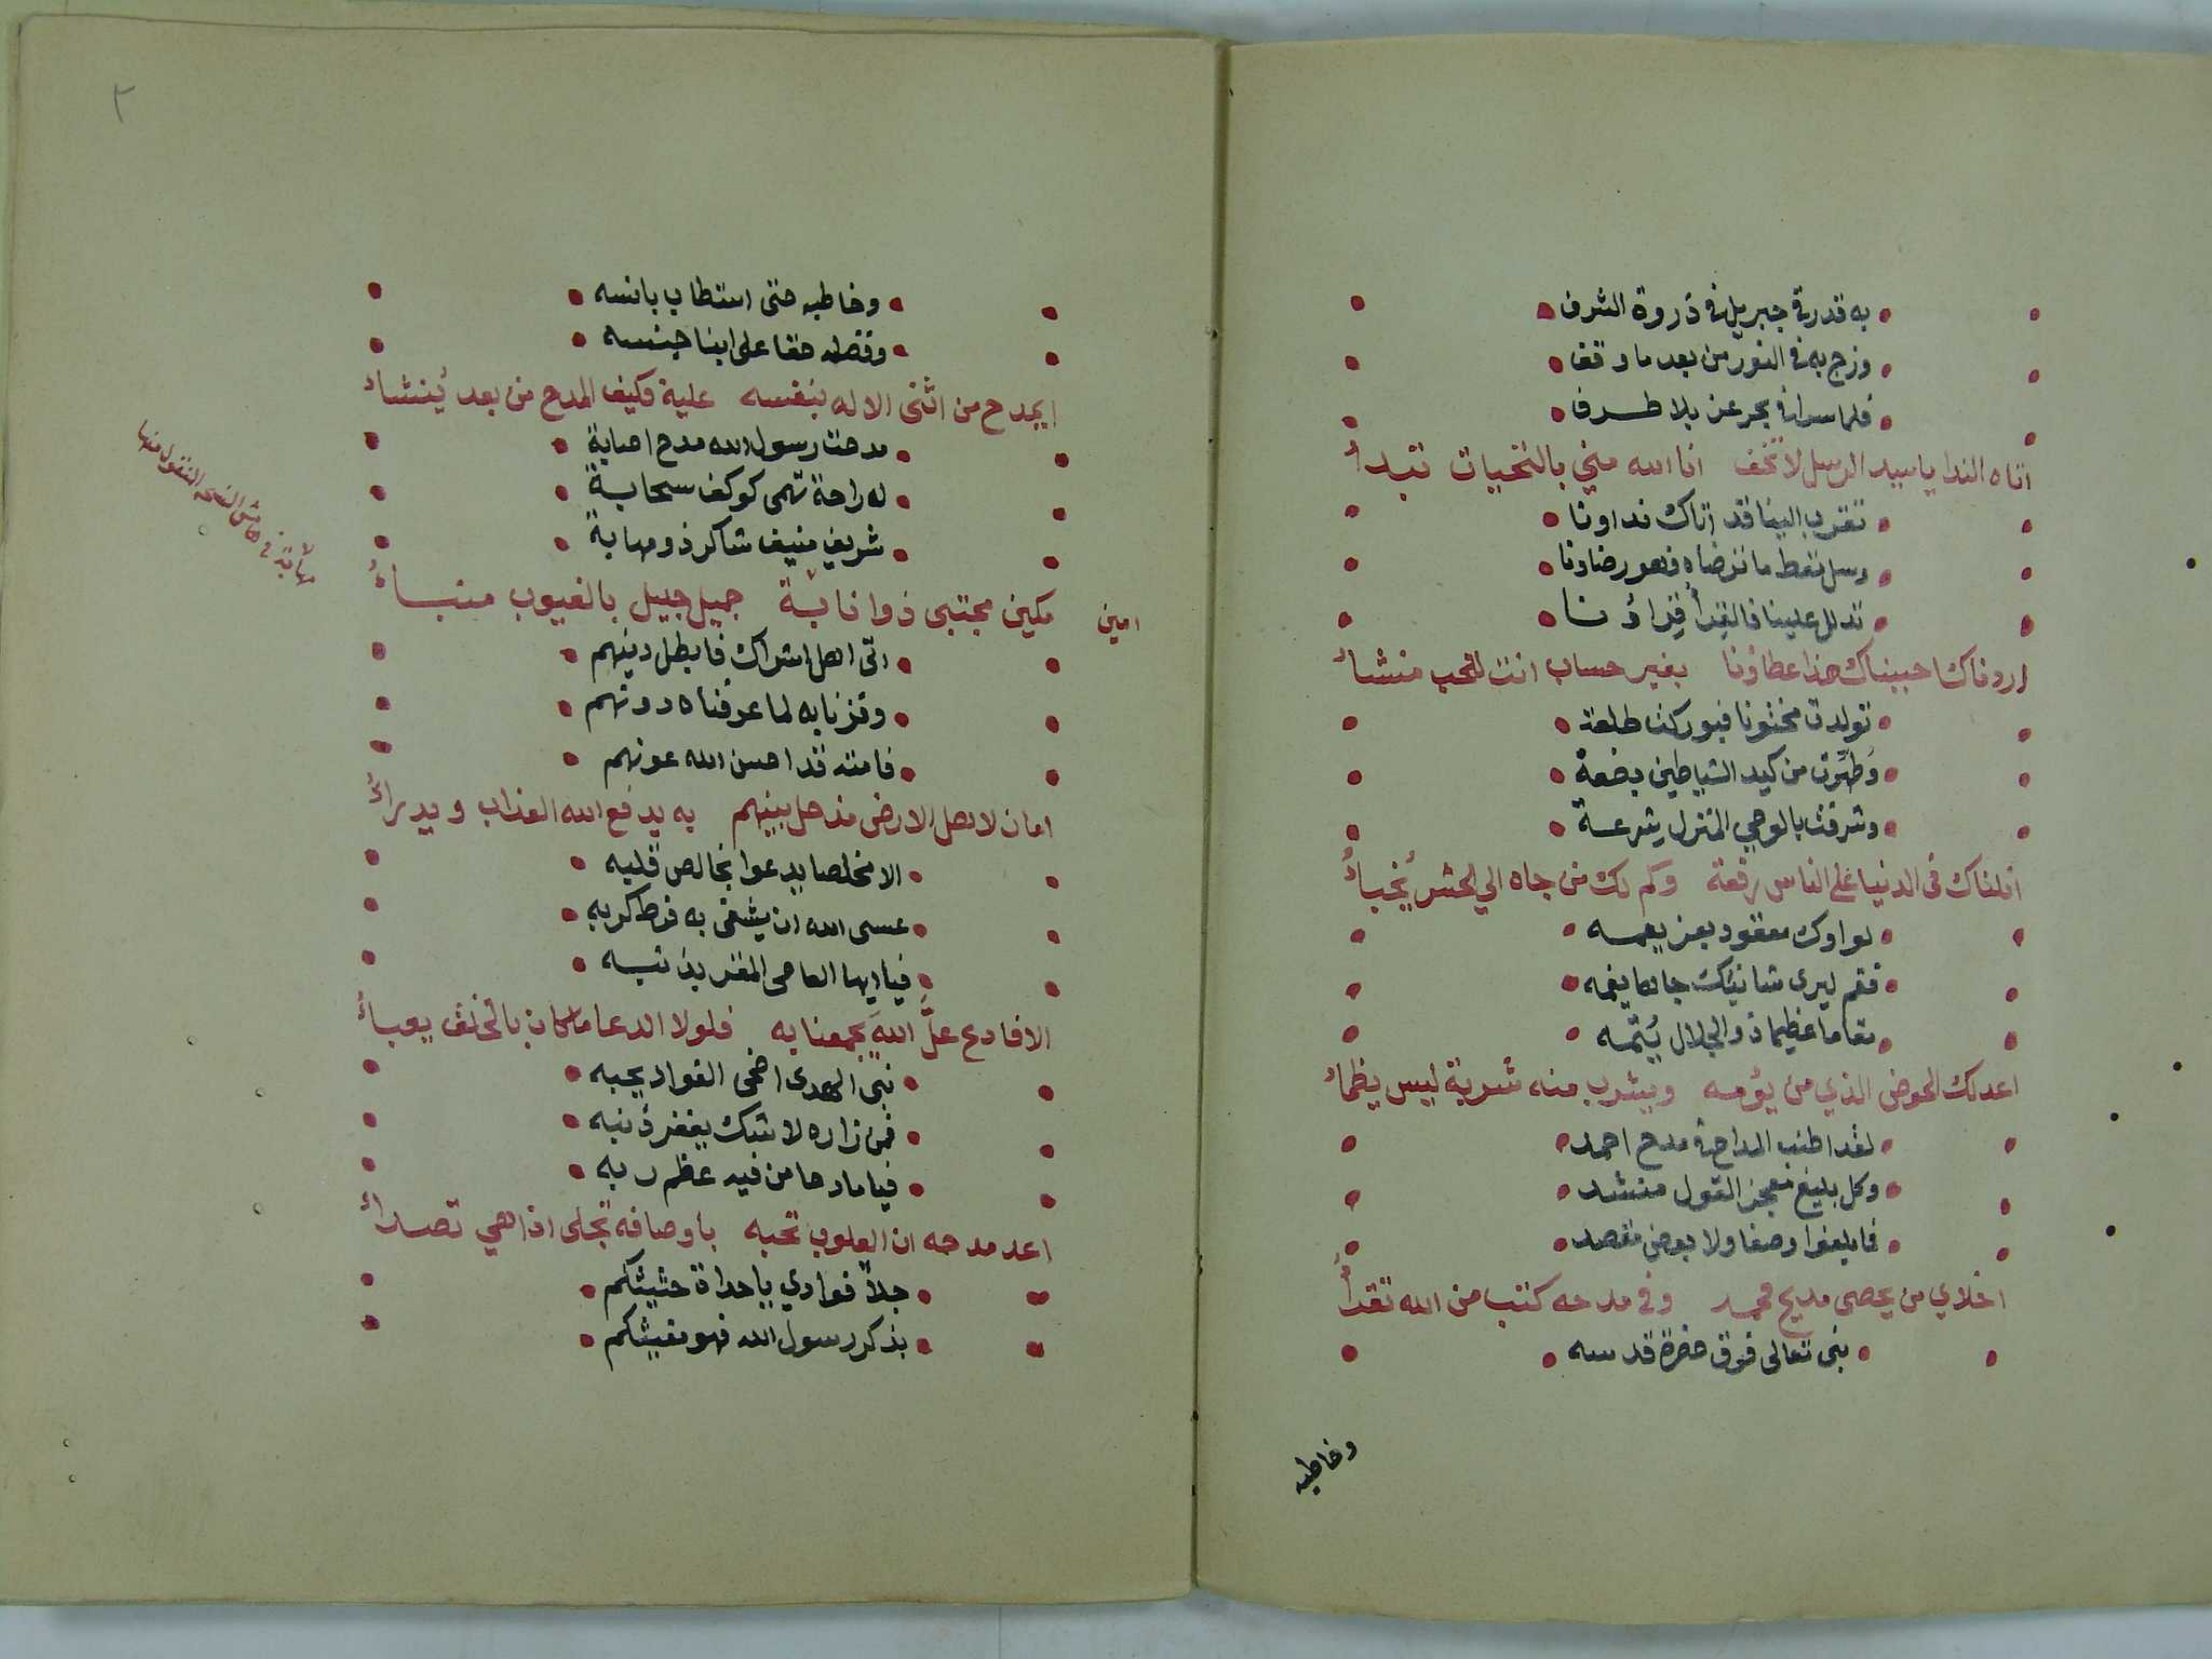 به قد رقى جبريل فى ذروة الشرف
وزج به فى النور من بعد ما وقف
فلما سرا فى بحر عز بلا طرف
اتاه الندا يا سيد الرسل لا تخف انا الله مني بالتحيات تبدأ
تقرب الينا قد اتاك نداونا
وسل تعط ما ترضاه فهو رضاونا
تدلل علينا فالقرأ قراؤنا
اردناك احببناك هذا عطاؤنا بغير حساب انت للحب منشأ
تولدت مختونا فبوركت طلعة
وطهرت من كيد الشياطين بضعة
وشرفت بالوحي المنزل شرعة
انلناك فى الدنيا على الناس رفعة وكم لك من جاه الي الحشر يُخبأُ
لواوك معقود بعز يعمه
فقم ليرى شانيك جاها يغمه
مقاما عظيما ذو الجلال يُتمّه
اعد لك الحوض الذي من يؤمه ويشرب منه شربة ليس يظماء
لقد اطنب المداح فى مدح احمد
وكل بليغ معجز القول منشد
فما بلغوا وصفا ولا بعض مقصد
اخلاي من يحصى مديح محمد وفى مدحه كتب من الله تقرأُ
نبى تعالى فوق حضرة قدسه
وخاطبه
٢
وخاطبه حتى استطاب بانسه
وفضله حقا على ابنا جنسه
ايمدح من اثنى الاله بنفسه عليه فكيف المدح من بعد يُنشاء
مدحت رسول الله مدح اصابة
له راحة تهمى كوكف سحابة
شريف منيف شاكر ذو مهابة
امين مكين مجتبى ذو انابة جميل جليل بالغيوب منبأُ
مهابة فى هامش النسخه المنقول منها
اتى اهل اشراك فابطل دينهم
وفزنا به لما عرفناه دونهم
فامته قد احسن الله عونهم
امان لاهل الارض مذ حل بينهم به يدفع الله العذاب ويدرأُ
الا مخلصا يدعوا بخالص قلبه
عسى الله ان يشفى به فرط كربه
فيا ايها العاصى المقر بذنبه
الا فادع علَّ اللهَ يجمعنا به فلولا الدعا ما كان بالخلق يعبأُ
نبى الهدى اضحى الفواد يحبه
فمن زاره لا شك يغفر ذنبه
فيا مادحا من فيه عظم ربه
اعد مدحه ان القلوب تحبه باوصافه تجلى اذا هي تصدأُ
جلاً فوادي يا حداة حثيثكم
بذكر رسول الله فهو مغيثكم